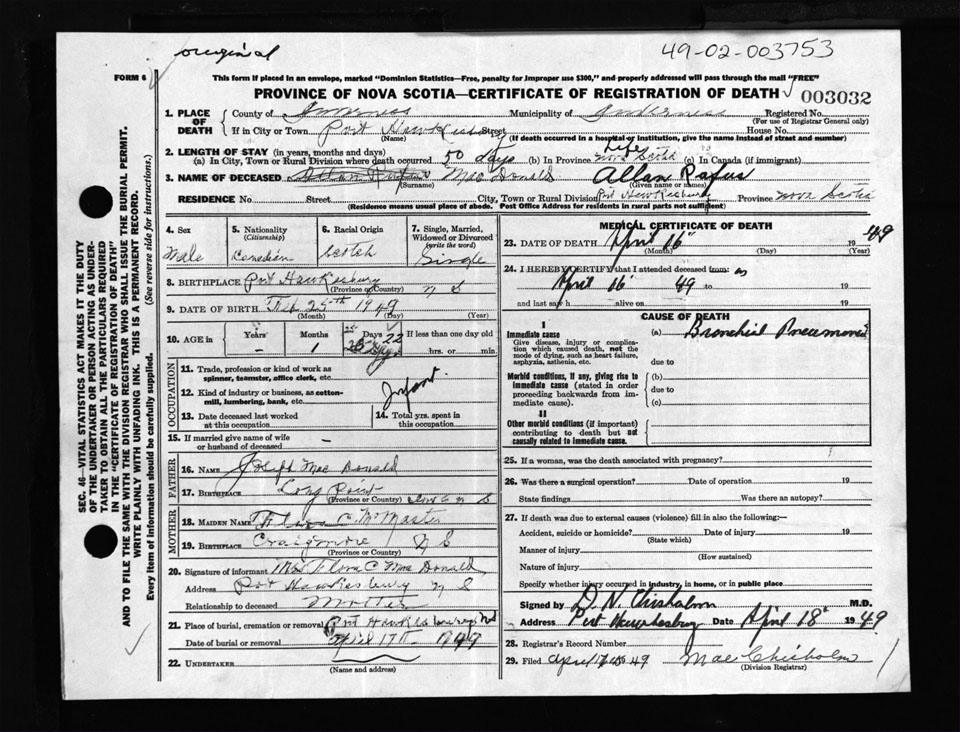 original
49-02-003753
FORM 6
This form if placed in an envelope, marked "Dominion Statistics—Free, penalty for improper use $300," and properly addressed will pass through the mail "FREE"
PROVINCE OF NOVA SCOTIA—CERTIFICATE OF REGISTRATION OF DEATH
003032
SEC. 46—VITAL STATISTICS ACT MAKES IT THE DUTY
OF THE UNDERTAKER OR PERSON ACTING AS UNDER-
TAKER TO OBTAIN ALL THE PARTICULARS REQUIRED
IN THE "CERTIFICATE OF REGISTRATION OF DEATH"
AND TO FILE THE SAME WITH THE DIVISION REGISTRAR WHO SHALL ISSUE THE BURIAL PERMIT.
WRITE PLAINLY WITH UNFADING INK. THIS IS A PERMANENT RECORD.
Every item of information should be carefully supplied. (See reverse side for instructions.)
1. PLACE OF DEATH County of Inverness Municipality of Inverness Registered No.
(For use of Registrar General only)
If in City or Town Port Hawkesbury Street House No.
(Name) (If death occurred in a hospital or institution, give the name instead of street and number)
2. LENGTH OF STAY (in years, months and days)
(a) In City, Town or Rural Division where death occurred 50 days (b) In Province Life Nova Scotia (c) In Canada (if immigrant)
3. NAME OF DECEASED Mac Donald Allan Rafus
(Surname) (Given name or names)
RESIDENCE No. Street City, Town or Rural Division Port Hawkesbury Province Nova Scotia
(Residence means usual place of abode. Post Office Address for residents in rural parts not sufficient)
4. Sex
Male
5. Nationality
(Citizenship)
Canadian
6. Racial Origin
Scotch
7. Single, Married,
Widowed or Divorced
(write the word)
Single
8. BIRTHPLACE Port Hawkesbury N S
(Province or Country)
9. DATE OF BIRTH Feb 25th 1949
(Month) (Day) (Year)
10. AGE in Years Months Days If less than one day old
- 1 22 hrs. or min.
OCCUPATION
11. Trade, profession or kind of work as
spinner, teamster, office clerk, etc.
12. Kind of industry or business, as cotton-
mill, lumbering, bank, etc.
Infant
13. Date deceased last worked
at this occupation
14. Total yrs. spent in
this occupation
15. If married give name of wife
or husband of deceased -
FATHER
16. NAME Joseph Mac Donald
17. BIRTHPLACE Long Point N S
(Province or Country)
MOTHER
18. MAIDEN NAME Flora C McMaster
19. BIRTHPLACE Craigmore N S
(Province or Country)
20. Signature of informant Mrs Flora C Mac Donald
Address Port Hawkesbury N S
Relationship to deceased Mother
21. Place of burial, cremation or removal Port Hawkesbury
Date of burial or removal April 17th 1949
22. UNDERTAKER
(Name and address)
MEDICAL CERTIFICATE OF DEATH
23. DATE OF DEATH April 16 1949
(Month) (Day) (Year)
24. I HEREBY CERTIFY that I attended deceased from: on
April 16 49 to 19
and last saw h alive on 19
CAUSE OF DEATH
I
Immediate cause
Give disease, injury or complica-
tion which caused death, not the
mode of dying, such as heart failure,
asphyxia, asthenia, etc.
(a) Bronchial Pneumonia
due to
Morbid conditions, if any, giving rise to
immediate cause (stated in order
proceeding backwards from im-
mediate cause).
(b)
due to
(c)
II
Other morbid conditions (if important)
contributing to death but not
causally related to immediate cause.
25. If a woman, was the death associated with pregnancy?
26. Was there a surgical operation? Date of operation 19
State findings Was there an autopsy?
27. If death was due to external causes (violence) fill in also the following:—
Accident, suicide or homicide? Date of injury 19
(State which)
Manner of injury
(How sustained)
Nature of injury
Specify whether injury occurred in industry, in home, or in public place
Signed by D. N. Chisholm M.D.
Address Port Hawkesbury Date April 18th 1949
28. Registrar's Record Number
29. Filed April 49 Mae Chisholm
(Division Registrar)